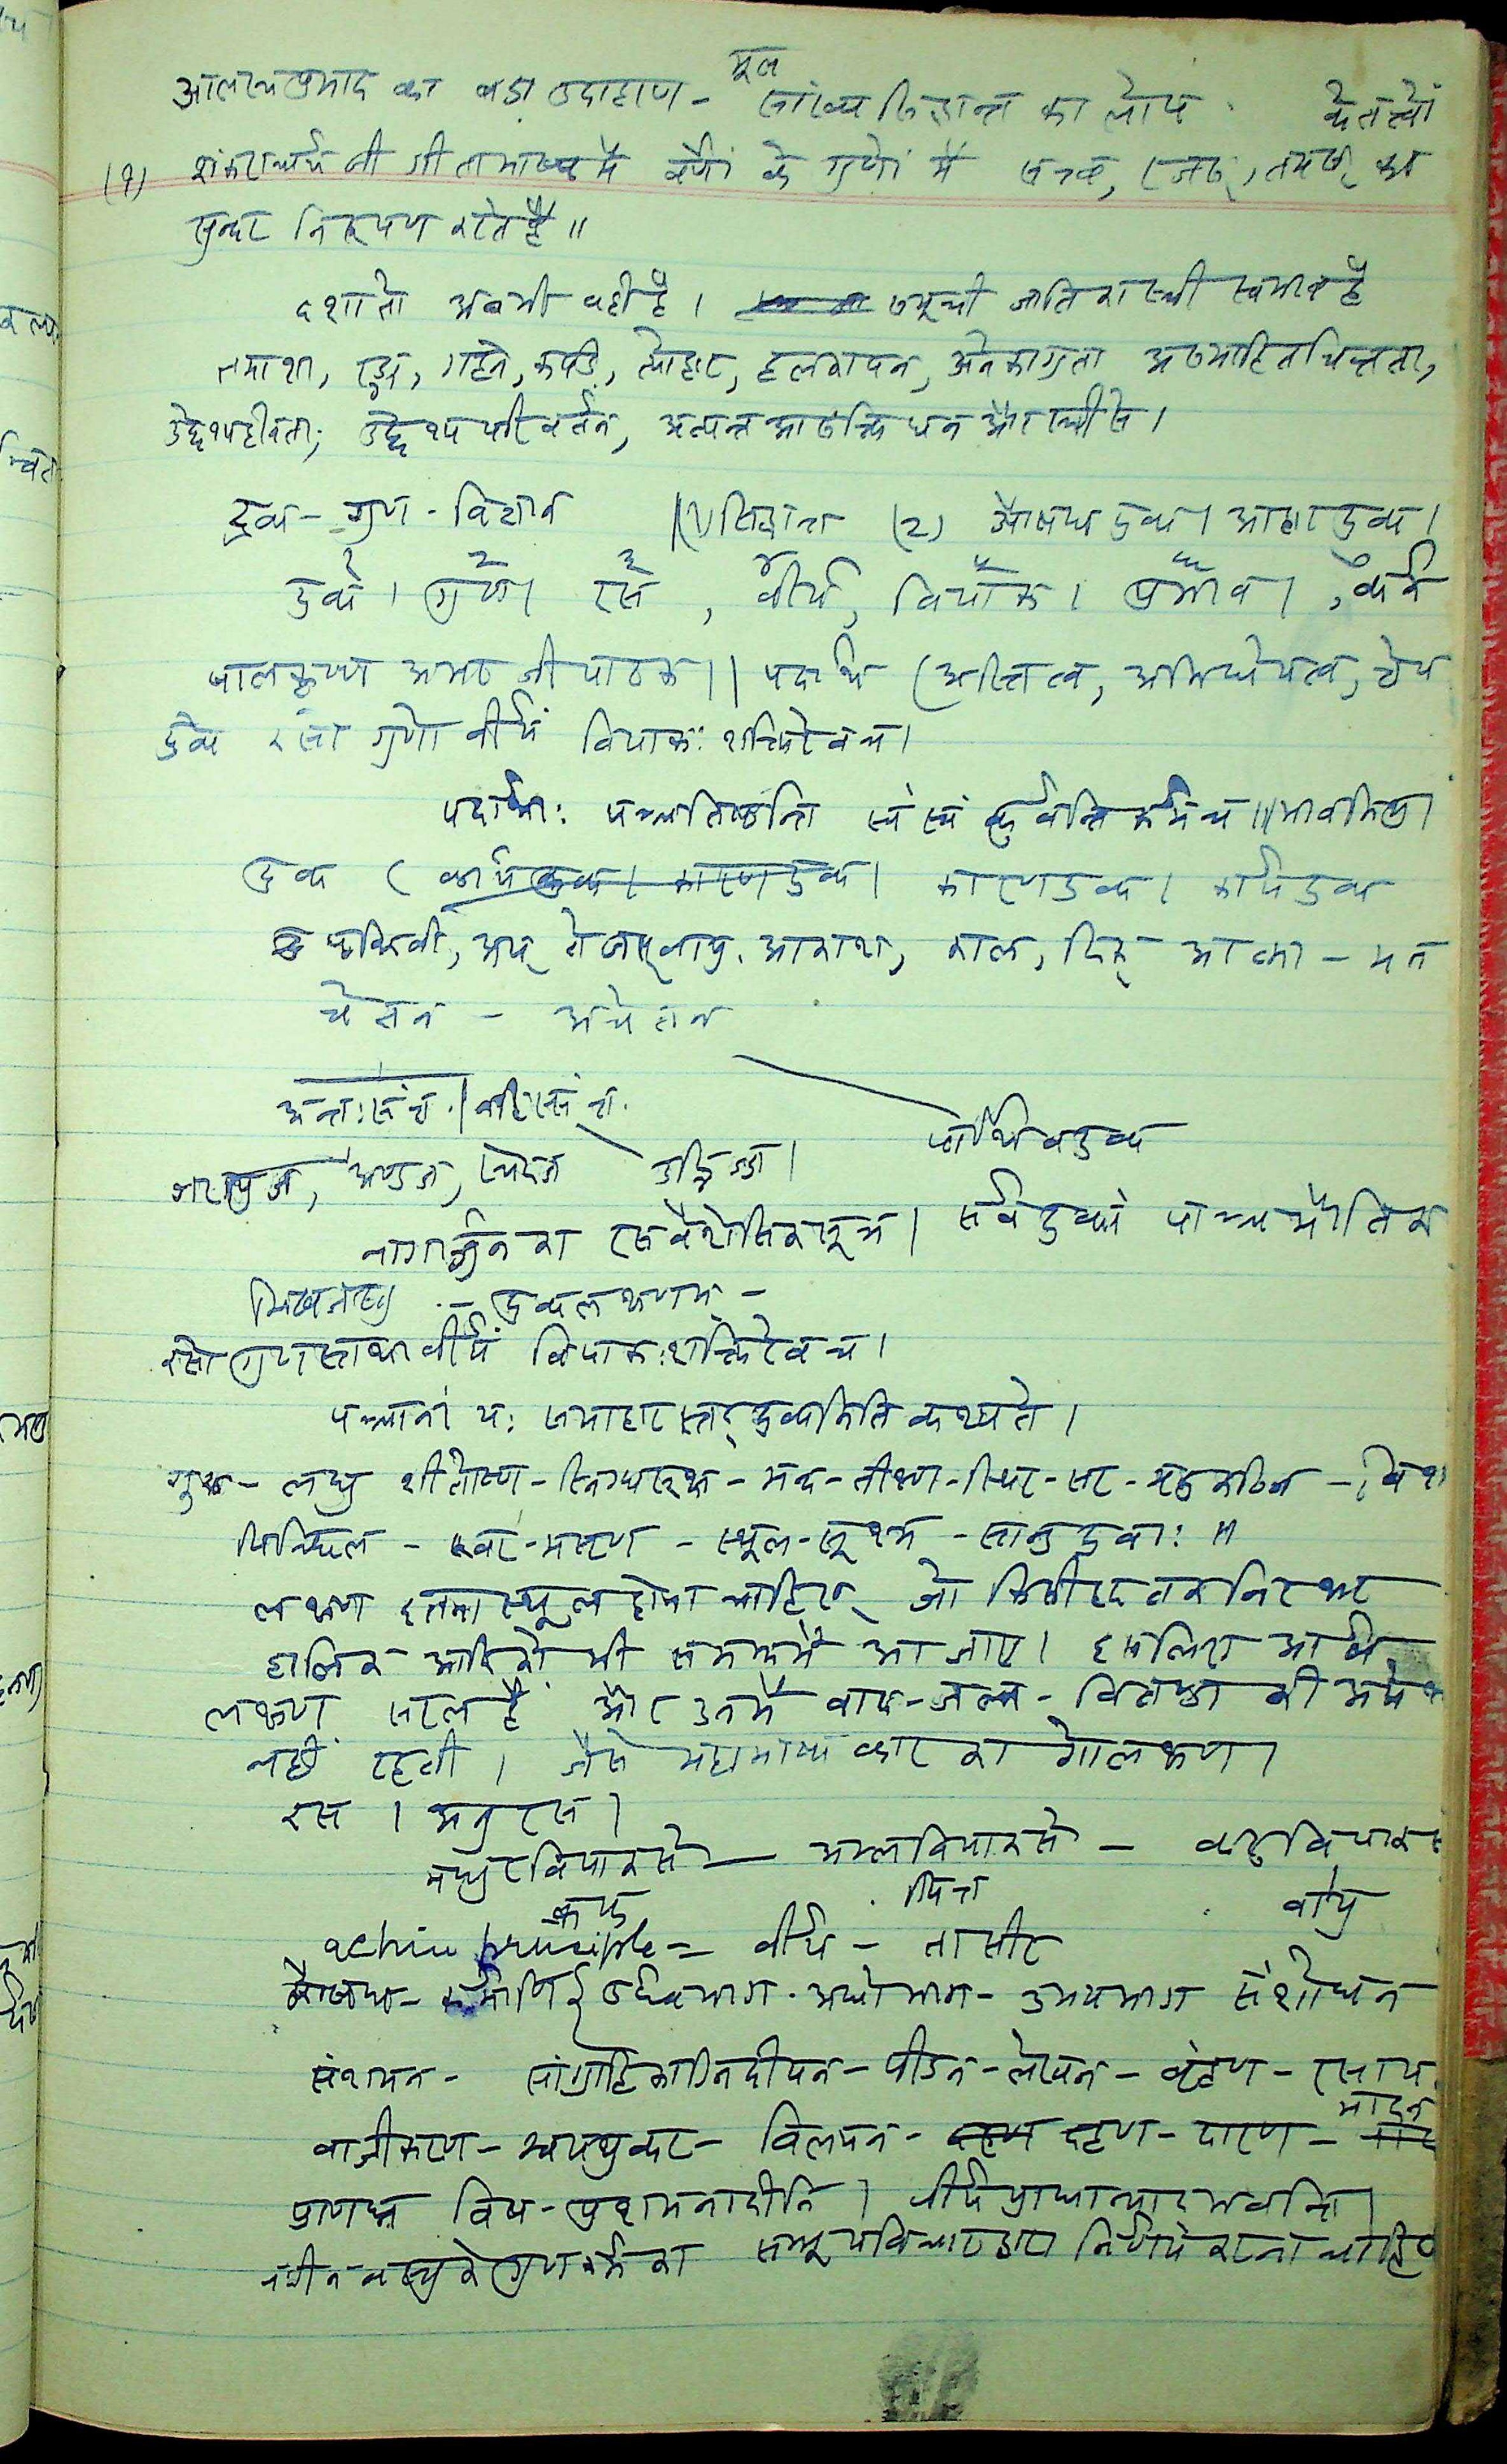 मूल
आलस्य प्रमाद का बडा उदाहरण - सांख्य सिद्धान्त का लोप के तत्वों
(१) शंकराचार्य जी गीताभाष्य में वर्णों के गुणों में सत्व, रजस्, तमस् का
सुन्दर निरूपण करते हैं ॥
दशा तो अब भी वही है । समूची जाति का स्त्री स्वभाव है
तमाशा, गहने, कपडे, त्योहार, हलकापन, अनेकाग्रता असमाहितचित्तता,
उद्देश्यहीनता, उद्देश्य परिवर्तन, अत्यन्त आसक्ति धन और स्त्री से ।
द्रव्य - गुण - विज्ञान (१) सिद्धान्त (२) औषध द्रव्य । आहार द्रव्य ।
१ २ ३ ४ ५ ६ ७
द्रव्य । गुण । रस , वीर्य, विपाक । प्रभाव । , कर्म
बालकृष्ण अमर जी पाठक ॥ पदार्थ (अस्तित्व, अभिधेयत्व, ज्ञेय
द्रव्य रसो गुणो वीर्यं विपाकः शक्तिरेव च ।
पदार्थाः पञ्च तिष्ठन्ति स्वं स्वं कुर्वन्ति कर्म च ॥ भावमिश्र ।
द्रव्य ( कार्यद्रव्य । कारणद्रव्य । कारणद्रव्य । कार्यद्रव्य
पृथिवी, अप् तेजस् वायु, आकाश, काल, दिक् आत्मा - मन
चेतन - अचेतन
अन्तःसंज्ञ । बहिःसंज्ञ.
पार्थिव द्रव्य
जरायुज, अण्डज, स्वेदज उद्भिज्ज ।
नागार्जुन का रसवैशेषिक सूत्र । सर्व द्रव्यं पाञ्चभौतिक
- द्रव्यलक्षणम् -
रसो गुणस्तथा वीर्यं विपाकः शक्तिरेव च ।
पञ्चानां यः समाहारस्तद् द्रव्यमिति कथ्यते ।
गुरु - लघु शीतोष्ण - स्निग्धरूक्ष - मन्द - तीक्ष्ण - स्थिर - सर - मृदु कठिन - विश
पिच्छिल - खर - मसृण - स्थूल - सूक्ष्म - सान्द्र द्रवाः ॥
लक्षण इतना स्थूल होना चाहिए जो किसी हद तक निरक्षर
हालिक आदि को भी समझ में आ जाए । इसलिए आर्ष
लक्षण सरल हैं और उनमें वाद - जल्प - वितण्डा की अपेक्षा
नहीं रहती । जैसे महाभाष्यकार का गोलक्षण ।
रस । अनुरस ।
मधुर विपाक से — अम्लविपाक से - कटु विपाक से
कफ पित्त वायु
active principle = वीर्य - तासीर
कर्माणि ऊर्ध्वभाग - अधोभाग - उभयभाग संशोधन
संशमन - सांग्राहिकाग्निदीपन - पीडन - लेखन - बृंहण - रसाय
वाजीकरण - श्वयथुकर - विलयन - दहण - दारण - मादन
प्राणघ्न विष - प्रशमनादीनि । वीर्यप्राधान्याद् भवन्ति ।
नवीन वस्तु के गुण कर्म का सम्भूय विचार द्वारा निर्णय करना चाहिए